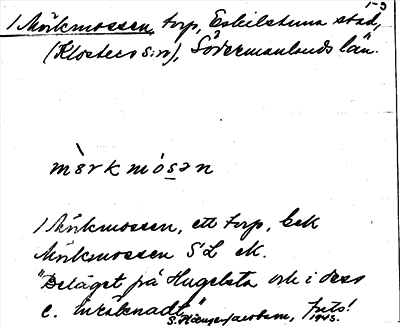 1-3
1 Mörkmossen, torp, Eskilstuna stad,
(Klosters s:n), Södermanlands län.
mò̈rkmósən
1 Mörkmossen, ett torp, bek
Mörkmossen SL ek.
"Beläget på Hugelsta och i dess
e. inräknadt"
1913.